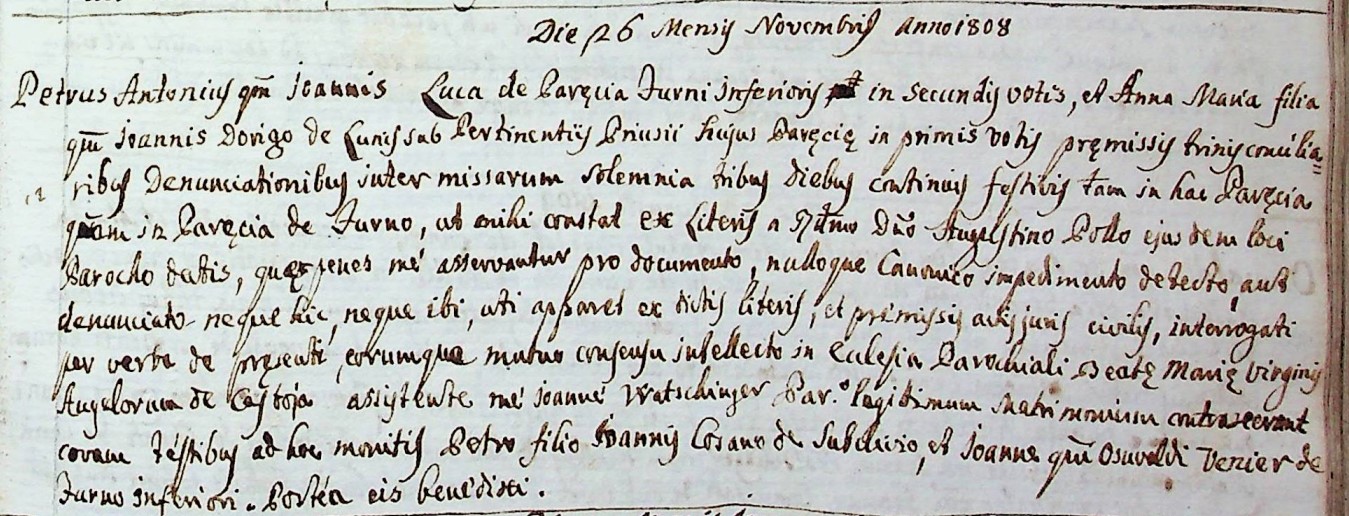 Die 26 Mensis Novembris Anno 1808
Petrus Antonius qm̃ Joannis Luca de Paręcia Furni Inferioris in secundis votis, et Anna Maria filia
qm̃ Joannis Dorigo de Lunis sub Pertinentiis Priusii hujus Paręcię in primis votis pręmissis trinis concilia=
ribus Denunciationibus inter missarum solemnia tribus diebus continuis festivis tam in hac Paręcia
quam in Paręcia de Furno, ut mihi constat ex Literis a Dño Augustino Pollo ejusdem loci
Parocho datis, quę penes me asservantur pro documento, nulloque Canonico impedimento detecto, aut
denunciato neque hic, neque ibi, uti apparet ex dictis literis, et pręmissis actis juris civilis, interrogati
per verba de pręsenti, eorumque mutuo consensu intellecto in Eclesia Parochiali Beatę Marię Virginis
Angelorum de Castoja assistente me Joanne Watschinger Par.º legitimum Matrimonium contraxerunt
coram testibus ad hoc monitis Petro filio Joannis Cosano de Subclivio, et Joanne qm̃ Osuvaldi Venier de
Furno Inferiori. Postea eis benedixi.